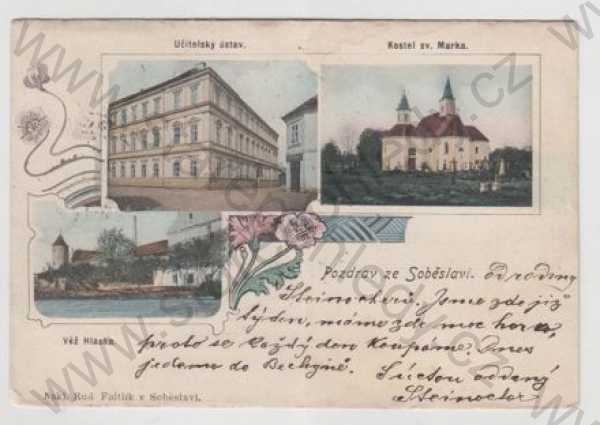 Učitelský ústav.
Kostel sv. Marka.
Pozdrav ze Soběslavi. od rodiny
Steinocherů. Jsme zde již
týden, máme zde moc horka,
proto se každý den koupáme. Dnes
jedeme do Bechyně.
S úctou oddaný
Steinocher
Věž Hláska.
Nakl. Rud. Faltlík v Soběslavi.